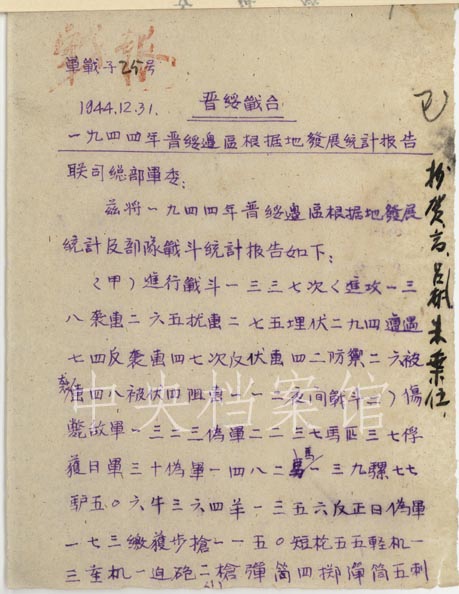 戰報
軍戰字25号
1944.12.31. 晋綏戰台
一九四四年晋綏邊區根据地發展統計报告
联司總部軍委:
兹將一九四四年晋綏邊區根据地發展
統計及部隊戰斗統計报告如下:
(甲)進行戰斗一三三七次(進攻一三
八襲击二六五扰击二七五埋伏二九四遭遇
七四反襲击四七次反伏击四二防禦二六被
襲击四八被伏四阻击一一二夜间戰斗三)傷
斃敌軍一三二三偽軍二二三七馬匹三七俘
獲日軍三十偽軍一四八二馬一三九騾七七
驴五〇六牛三六四羊一三五六反正日偽軍
一七三繳獲步槍一一五〇短枪五五輕机一
三重机一迫砲二槍彈筒四掷彈筒五刺
已
抄贺
中央档案馆